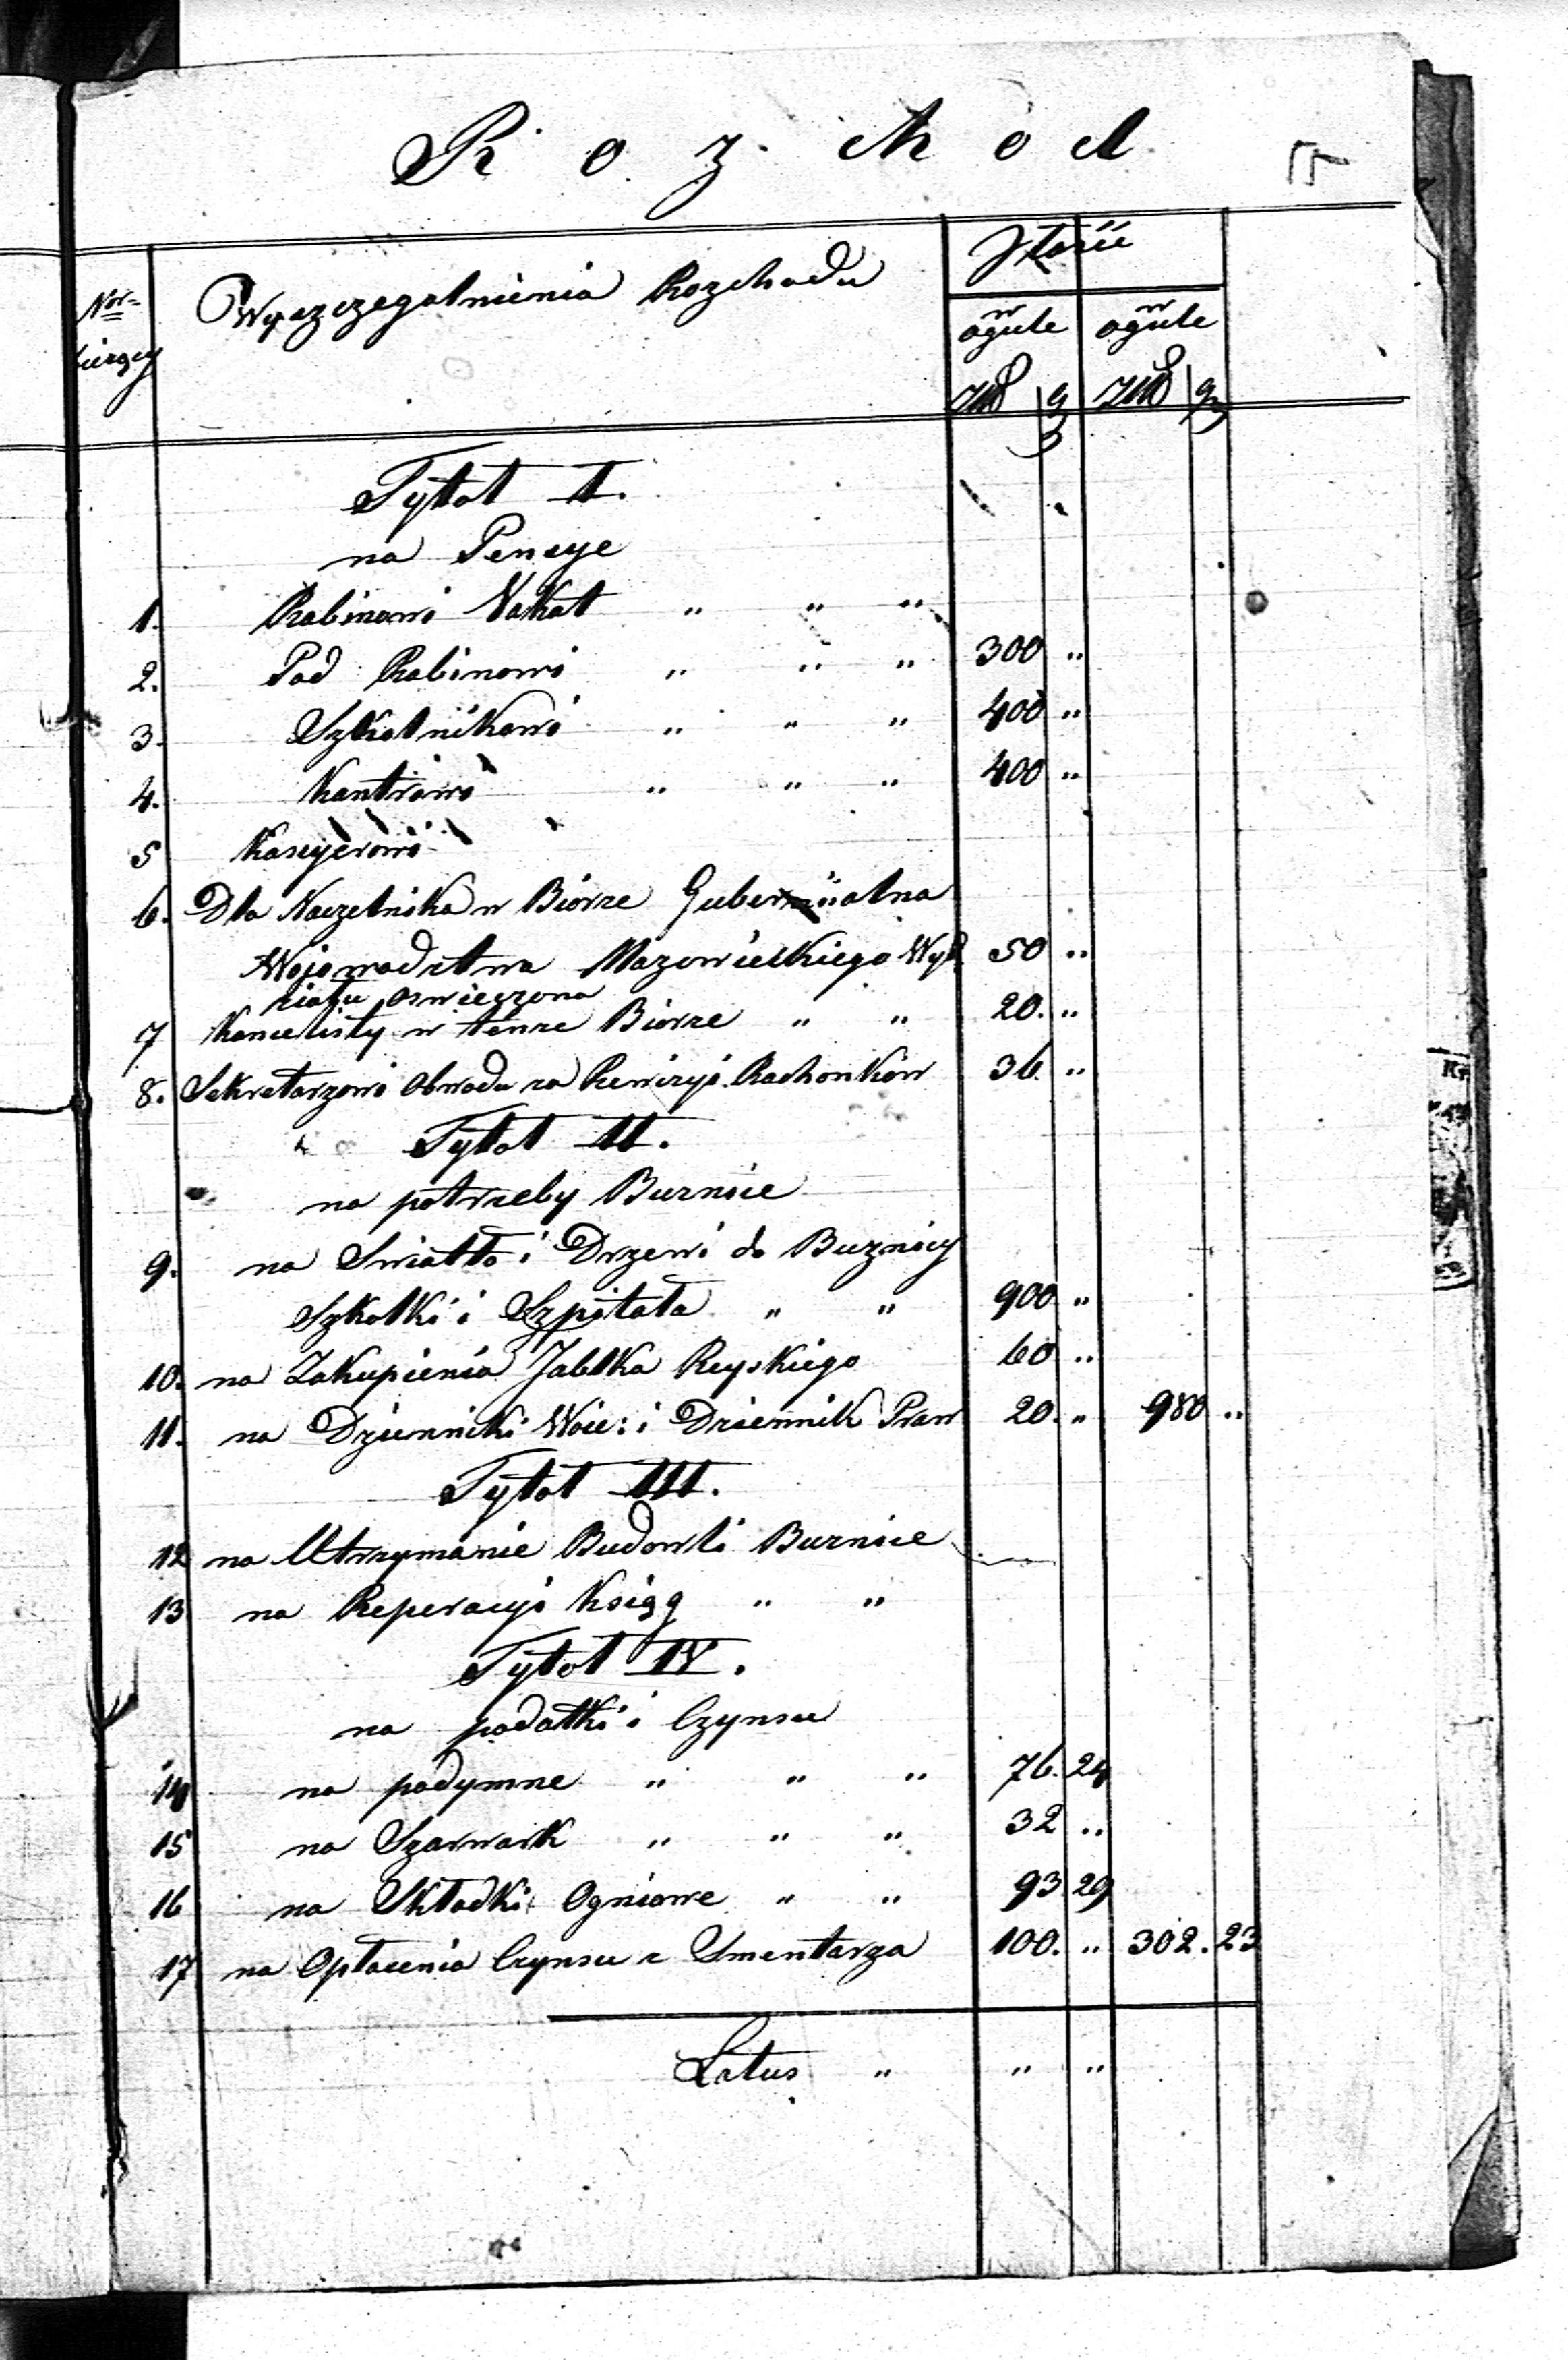 Rozchód
Nor= bierzący
Wyszczegolnienia Rozchodu
w ogüle
w ogüle
Złł g
Złł gr
Tytot I.
na Pensye
1. Rabinowi Vakat " " "
2. Pod Rabinowi " " " 300 "
3. Szkolnikowi " " " 400 "
4. Kantrowi " " " 400 "
5 Kasyerowi
6. Dla Naczelnika w Biórze Gubernialna
Wojewodztwa Mazowieckiego Wyd 50 "
ziału Oswieczona
7 Kancelisty w tenze Biórze " " 20. "
8. Sekretarzowi Obwodu za Rewizyi Rachonków 36. "
Tytot II.
na potrzeby Buznice
9. na Swiatło i Drzewi do Buznicy
Szkolki i Szpitala " " 900 "
10. na Zakupienia Jabłka Reyskiego 60 "
11. na Dzienniki Woie: i Dziennik Praw 20. " 980 "
Tytot III.
12 na Utrzymanie Budowli Buznice
13 na Reperacyi Ksiąg " "
Tytot IV.
na podatki i Czynsu
14 na podymne " " " 76. 24
15 na Szarwark " " " 32 "
16 na Składki Ogniowe " " 93 29
17 na Opłacenia Czynsu z Smentarza 100. " 302. 23
Latus " " "